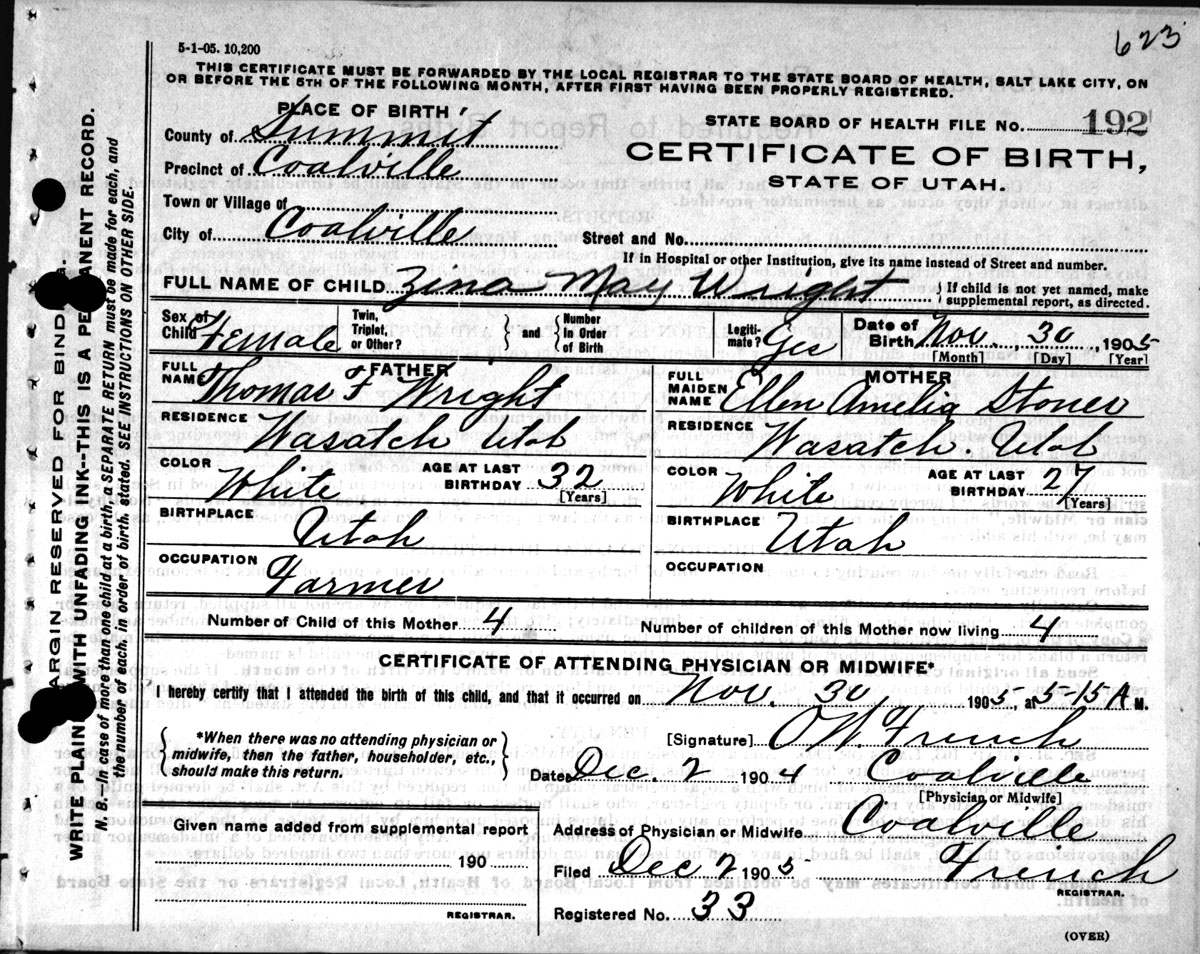 623
5-1-05. 10,200
THIS CERTIFICATE MUST BE FORWARDED BY THE LOCAL REGISTRAR TO THE STATE BOARD OF HEALTH, SALT LAKE CITY, ON
OR BEFORE THE 5TH OF THE FOLLOWING MONTH, AFTER FIRST HAVING BEEN PROPERLY REGISTERED.
PLACE OF BIRTH
County of Summit
Precinct of Coalville
Town or Village of
City of Coalville
STATE BOARD OF HEALTH FILE NO. 192
CERTIFICATE OF BIRTH,
STATE OF UTAH.
Street and No.
If in Hospital or other Institution, give its name instead of Street and number.
FULL NAME OF CHILD Zina May Wright { If child is not yet named, make
supplemental report, as directed.
Sex of Child Female
Twin, Triplet, or Other? } and { Number In Order of Birth
Legitimate? Yes
Date of Birth Nov. 30, 1905
[Month] [Day] [Year]
FATHER
FULL NAME Thomas F Wright
RESIDENCE Wasatch Utah
COLOR White AGE AT LAST BIRTHDAY 32
[Years]
BIRTHPLACE Utah
OCCUPATION Farmer
MOTHER
FULL MAIDEN NAME Ellen Amelia Stoner
RESIDENCE Wasatch. Utah
COLOR White AGE AT LAST BIRTHDAY 27
[Years]
BIRTHPLACE Utah
OCCUPATION
Number of Child of this Mother 4 Number of children of this Mother now living 4
CERTIFICATE OF ATTENDING PHYSICIAN OR MIDWIFE*
I hereby certify that I attended the birth of this child, and that it occurred on Nov. 30 1905, at 5-15 A M.
{ *When there was no attending physician or
midwife, then the father, householder, etc.,
should make this return. }
[Signature] O W. French
Dated Dec. 2 1904 Coalville
[Physician or Midwife]
Given name added from supplemental report
190
REGISTRAR.
Address of Physician or Midwife Coalville
Filed Dec 2 1905 French
REGISTRAR.
Registered No. 33
(OVER)
MARGIN RESERVED FOR BINDING.
WRITE PLAINLY WITH UNFADING INK--THIS IS A PERMANENT RECORD.
N. B.--In case of more than one child at a birth, a SEPARATE RETURN must be made for each, and
the number of each, in order of birth, stated. SEE INSTRUCTIONS ON OTHER SIDE.